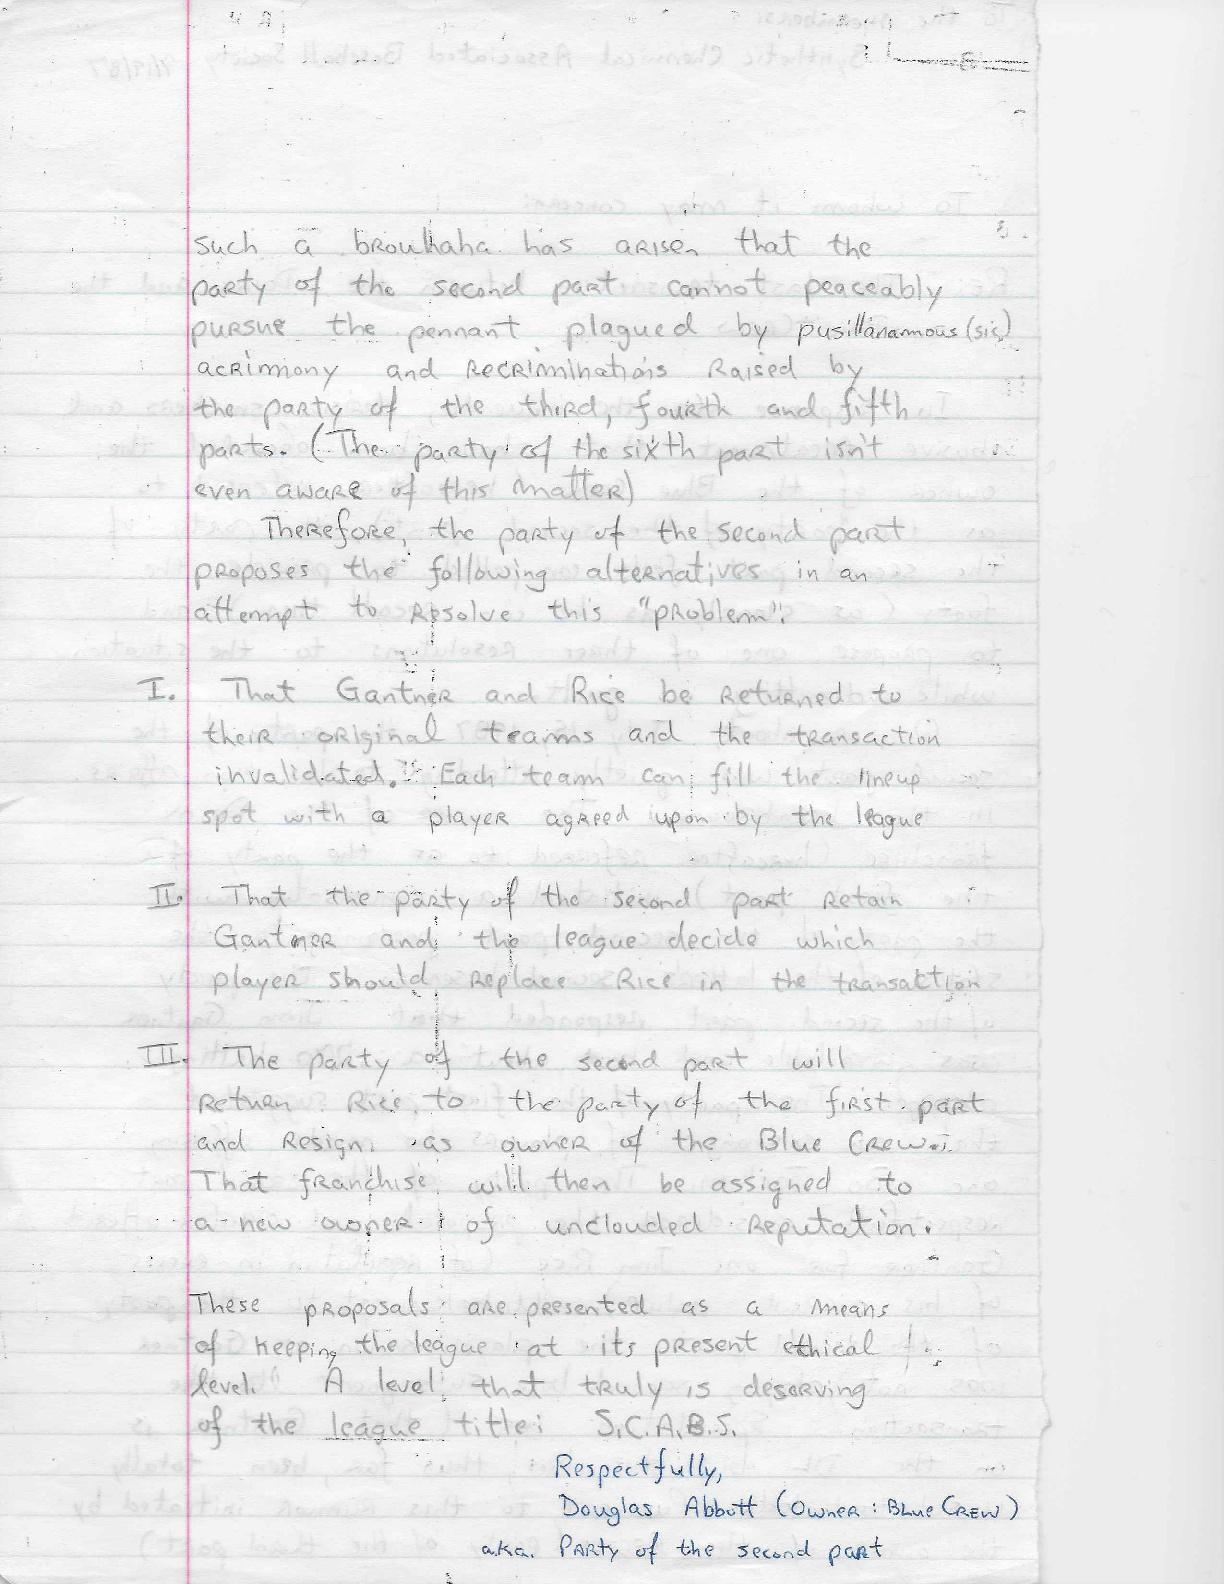 such a broukaha has arisen that the
party of the second part cannot peaceably
pursue the pennant plagued by pusillanamous (sic)
acrimony and recriminations raised by
the party of the third, fourth and fifth
parts. (The party of the sixth part isn't
even aware of this matter)
Therefore, the party of the second part
proposes the following alternatives in an
attempt to resolve this "problem":
I. That Gantner and Rice be returned to
their original teams and the transaction
invalidated. Each team can fill the lineup
spot with a player agreed upon by the league
II. That the party of the second part retain
Gantner and the league decide which
player should replace Rice in the transaction
III. The party of the second part will
return Rice to the party of the first part
and resign as owner of the Blue Crew.
That franchise will then be assigned to
a new owner of unclouded reputation.
These proposals are presented as a means
of keeping the league at its present ethical
level. A level that truly is deserving
of the league title: S.C.A.B.S.
Respectfully,
Douglas Abbott (Owner: Blue Crew)
a.k.a. Party of the second part